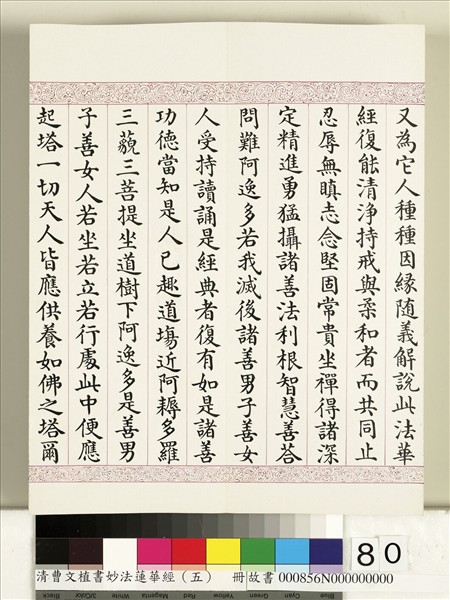 又為它人種種因緣隨義解說此法華
經復能清淨持戒與柔和者而共同止
忍辱無瞋志念堅固常貴坐禪得諸深
定精進勇猛攝諸善法利根智慧善荅
問難阿逸多若我滅後諸善男子善女
人受持讀誦是經典者復有如是諸善
功德當知是人已趣道場近阿耨多羅
三藐三菩提坐道樹下阿逸多是善男
子善女人若坐若立若行處此中便應
起塔一切天人皆應供養如佛之塔爾
80
清曹文植書妙法蓮華經（五） 冊故書 000856N000000000
Black 3/Color White Magenta Red Yellow Green Cyan Blue